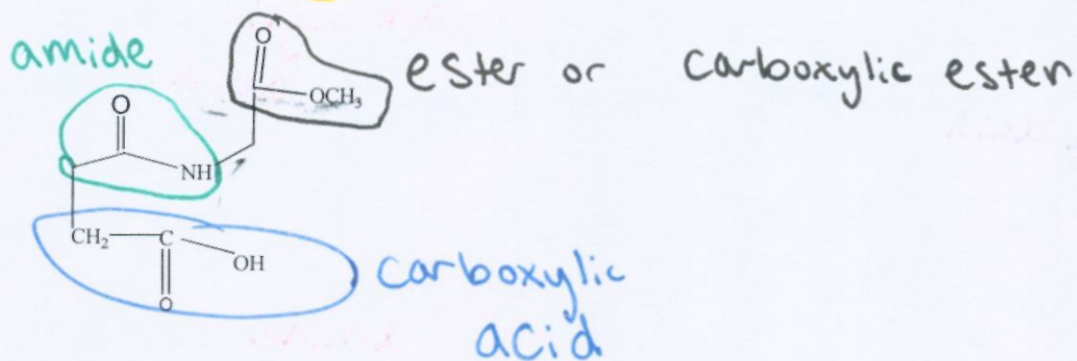 amide
O
ester or carboxylic ester
C
OCH₃
O
NH
CH₂
C
OH
O
carboxylic
acid